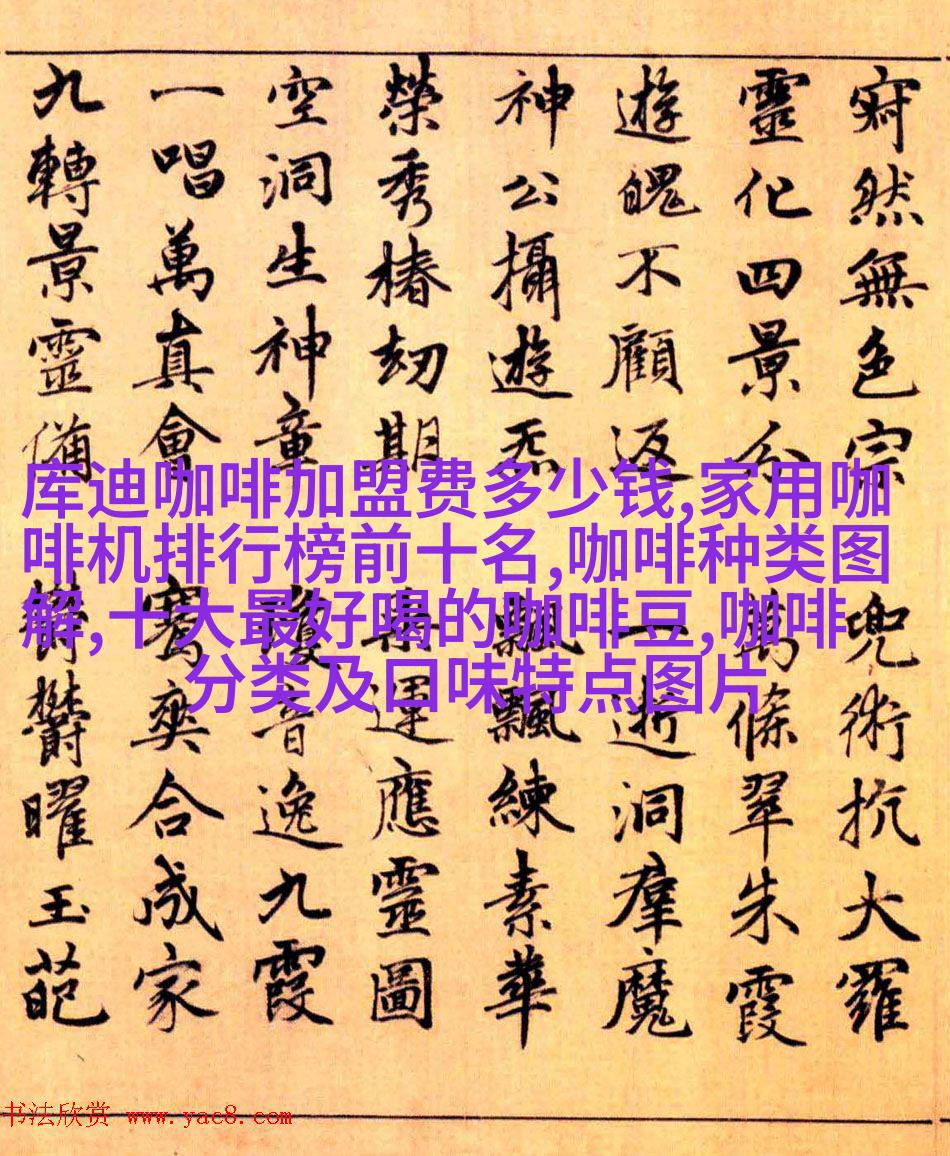 寂然無色宗 兜術抗大羅
靈化四景分 萬條翠朱霞
遊魂不顧返 一逝洞羣魔
神公攝遊炁 飄飄練素華
榮秀椿劫期 運應靈圖
空洞生神童 音逸九霞
一唱萬真會 騫爽合成家
九轉景靈備 鬱鬱曜玉葩
库迪咖啡加盟费多少钱,家用咖
啡机排行榜前十名,咖啡种类图
解,十大最好喝的咖啡豆,咖啡
分类及口味特点图片
书法欣赏 www.yac8.com